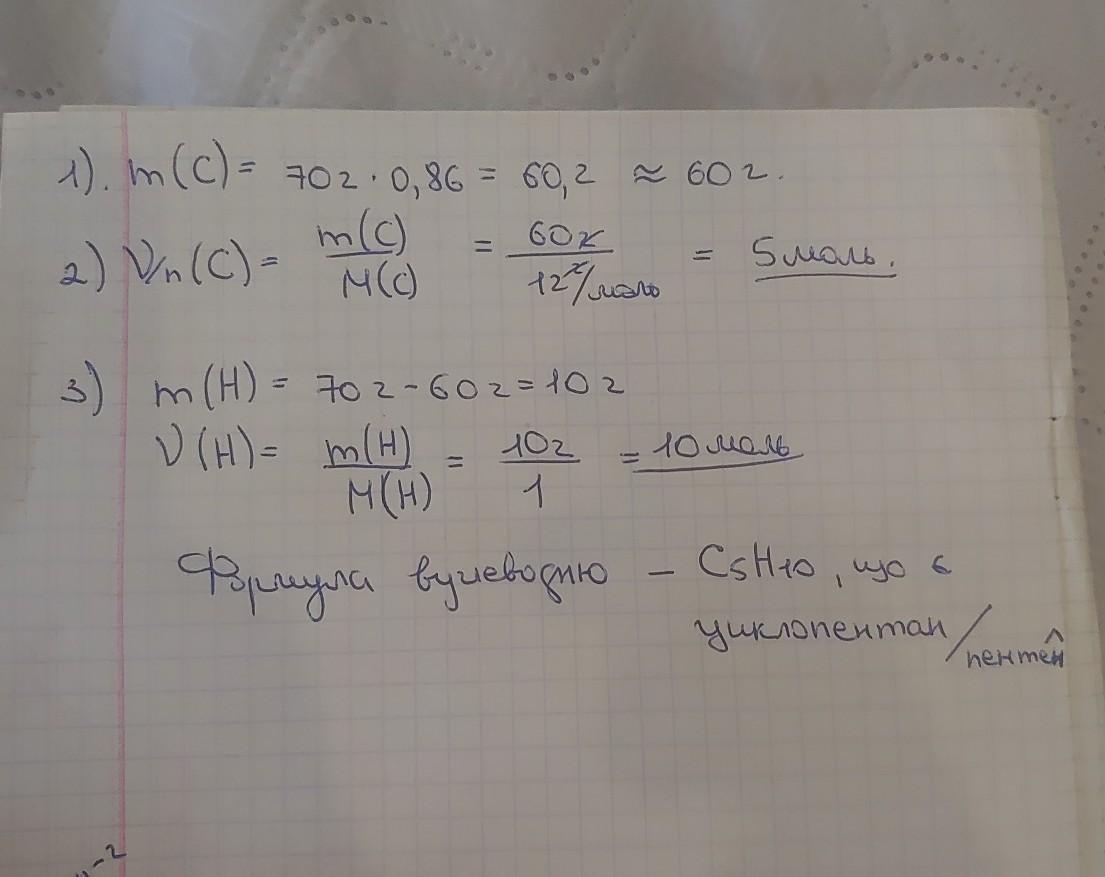 1). m(C) = 70г · 0,86 = 60,2 ≈ 60г.
2) V/n(C) = m(C)/M(C) = 60г/12г/моль = 5 моль.
3) m(H) = 70г - 60г = 10г
V(H) = m(H)/M(H) = 10г/1 = 10 моль
Формула вуглеводню – C5H10, що є
циклопентан/пентен